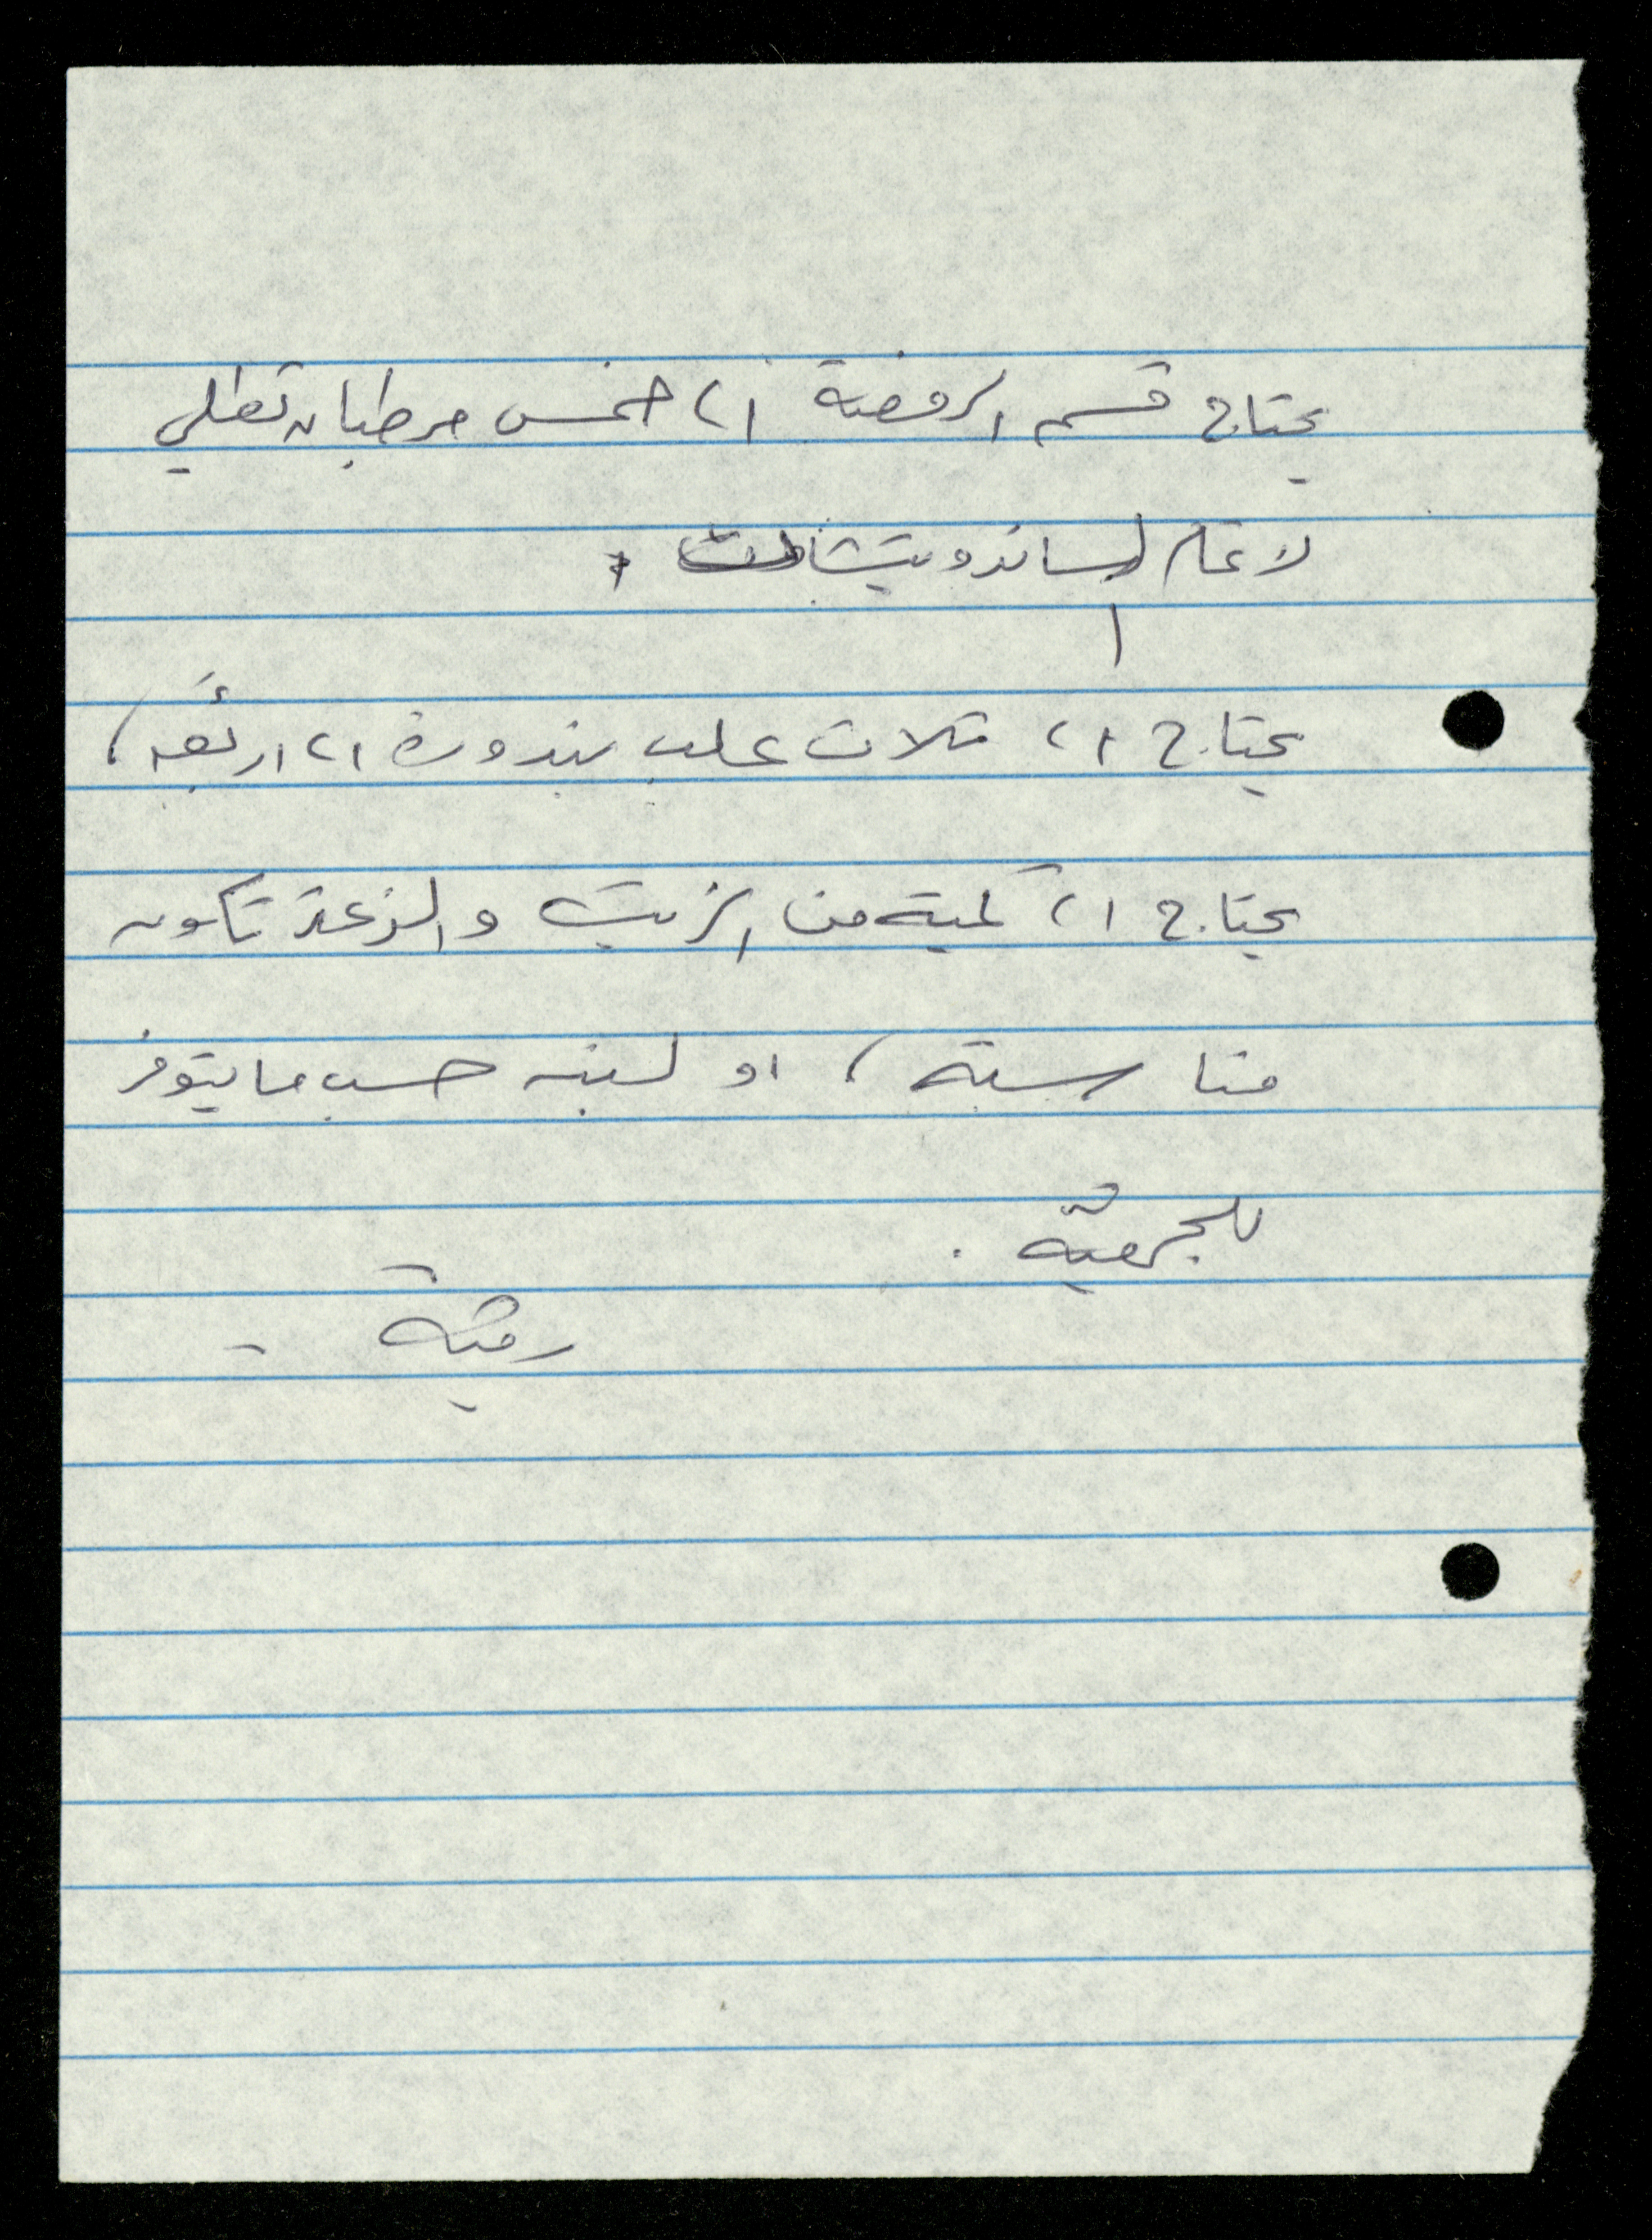 يحتاج قسم الروضة الى خمس مرطبان تطلي
لاعمال الساندويتشات ،
يحتاج الى ثلاث علب بندورة الى اربعه ،
يحتاج الى كمية من الزيت والزعتر تكون
مناسبة ، او لبنه حسب ما يتوفر
للجمعية .